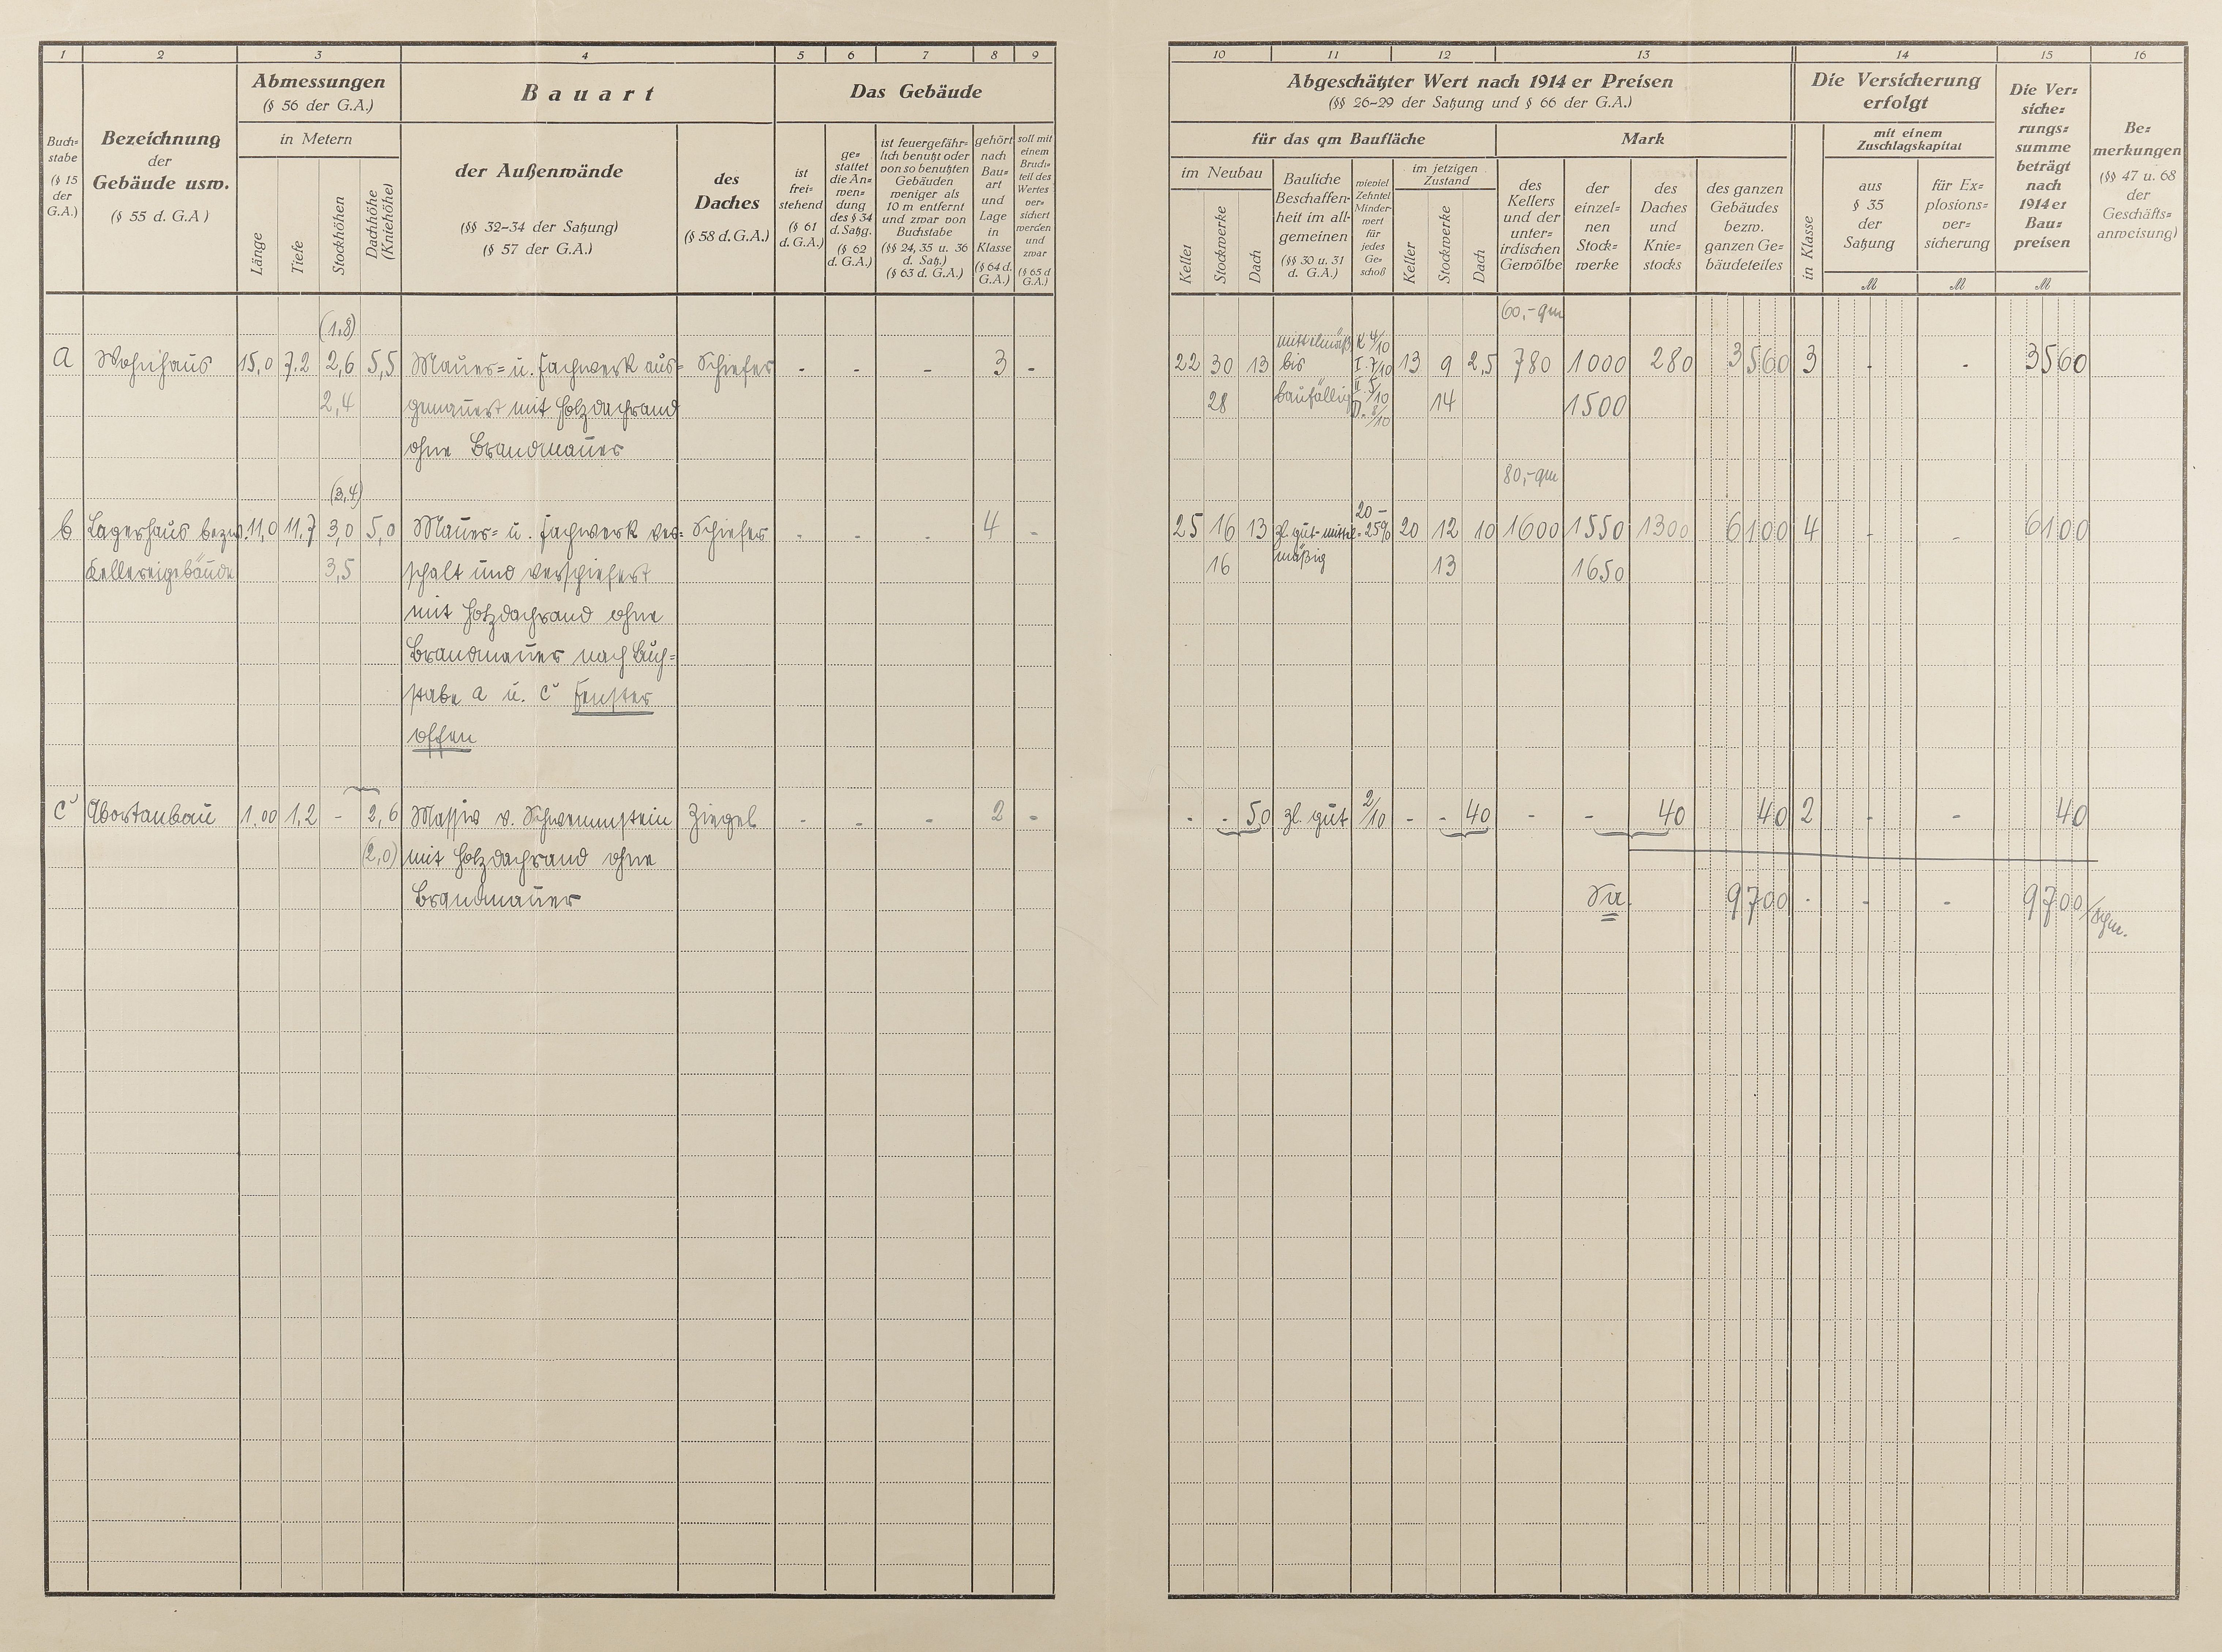 1 2 3 4 5 6 7 8 9
Abmessungen
(§ 56 der G.A.)
in Metern
Bauart
Das Gebäude
Buch=
stabe
(§ 15
der
G.A.)
Bezeichnung
der
Gebäude usw.
(§ 55 d. G.A)
Länge
Tiefe
Stockhöhen
Dachhöhe
(Kniehöhe)
der Außenwände
(§§ 32-34 der Satzung)
(§ 57 der G.A.)
des
Daches
(§ 58 d.G.A.)
ist
frei=
stehend
(§ 61
d. G.A.)
ge=
stattet
die An=
wen=
dung
des § 34
d. Satzg.
(§ 62
d. G.A.)
ist feuergefähr=
lich benutzt oder
von so benutzten
Gebäuden
weniger als
10 m entfernt
und zwar von
Buchstabe
(§§ 24, 35 u. 36
d. Satz.)
(§ 63 d. G.A.)
gehört
nach
Bau=
art
und
Lage
in
Klasse
(§ 64 d.
G.A.)
soll mit
einem
Bruch=
teil des
Wertes
ver=
sichert
werden
und
zwar
(§ 65 d
G.A.)
(1,8)
a Wohnhaus 15,0 7,2 2,6 5,5 Mauer= u. Fachwerk aus= Schiefer - - - 3 -
2,4 gemauert mit Holzdachrand
ohne Brandmauer
(3,4)
b Lagerhaus bezw. 11,0 11,7 3,0 5,0 Mauer= u. Fachwerk ver= Schiefer - - - 4 -
Kellereigebäude 3,5 schalt und verschiefert
mit Holzdachrand ohne
Brandmauer nach Buch=
stabe a u. c Fenster
offen
c Abortanbau 1,00 1,2 - 2,6 Massiv v. Schwemmstein Ziegel - - - 2 -
(2,0) mit Holzdachrand ohne
Brandmauer
10 11 12 13 14 15 16
Abgeschätzter Wert nach 1914 er Preisen
(§§ 26-29 der Satzung und § 66 der G.A.)
für das qm Baufläche
Mark
im Neubau
Keller
Stockwerke
Dach
Bauliche
Beschaffen=
heit im all=
gemeinen
(§§ 30 u. 31
d. G.A.)
wieviel
Zehntel
Minder=
wert
für
jedes
Ge=
schoß
im jetzigen
Zustand
Keller
Stockwerke
Dach
des
Kellers
und der
unter=
irdischen
Gewölbe
der
einzel=
nen
Stock=
werke
des
Daches
und
Knie=
stocks
des ganzen
Gebäudes
bezw.
ganzen Ge=
bäudeteiles
Die Versicherung
erfolgt
in Klasse
mit einem
Zuschlagskapital
aus
§ 35
der
Satzung
für Ex=
plosions=
ver=
sicherung
Die Ver=
siche=
rungs=
summe
beträgt
nach
1914 er
Bau=
preisen
Be=
merkungen
(§§ 47 u. 68
der
Geschäfts=
anweisung)
M M M
60,-qm
mittelmäß. K 4/10
22 30 13 bis I. 7/10 13 9 2,5 780 1000 280 3560 3 - - 3560
28 baufällig II 5/10 14 1500
D. 8/10
80,-qm
20 -
25 16 13 zl. gut-mittel= 25% 20 12 10 1600 1550 1300 6100 4 - - 6100
16 mäßig 13 1650
- - 50 zl. gut 2/10 - - 40 - - 40 40 2 - - 40
Sa. 9700 - - - 9700